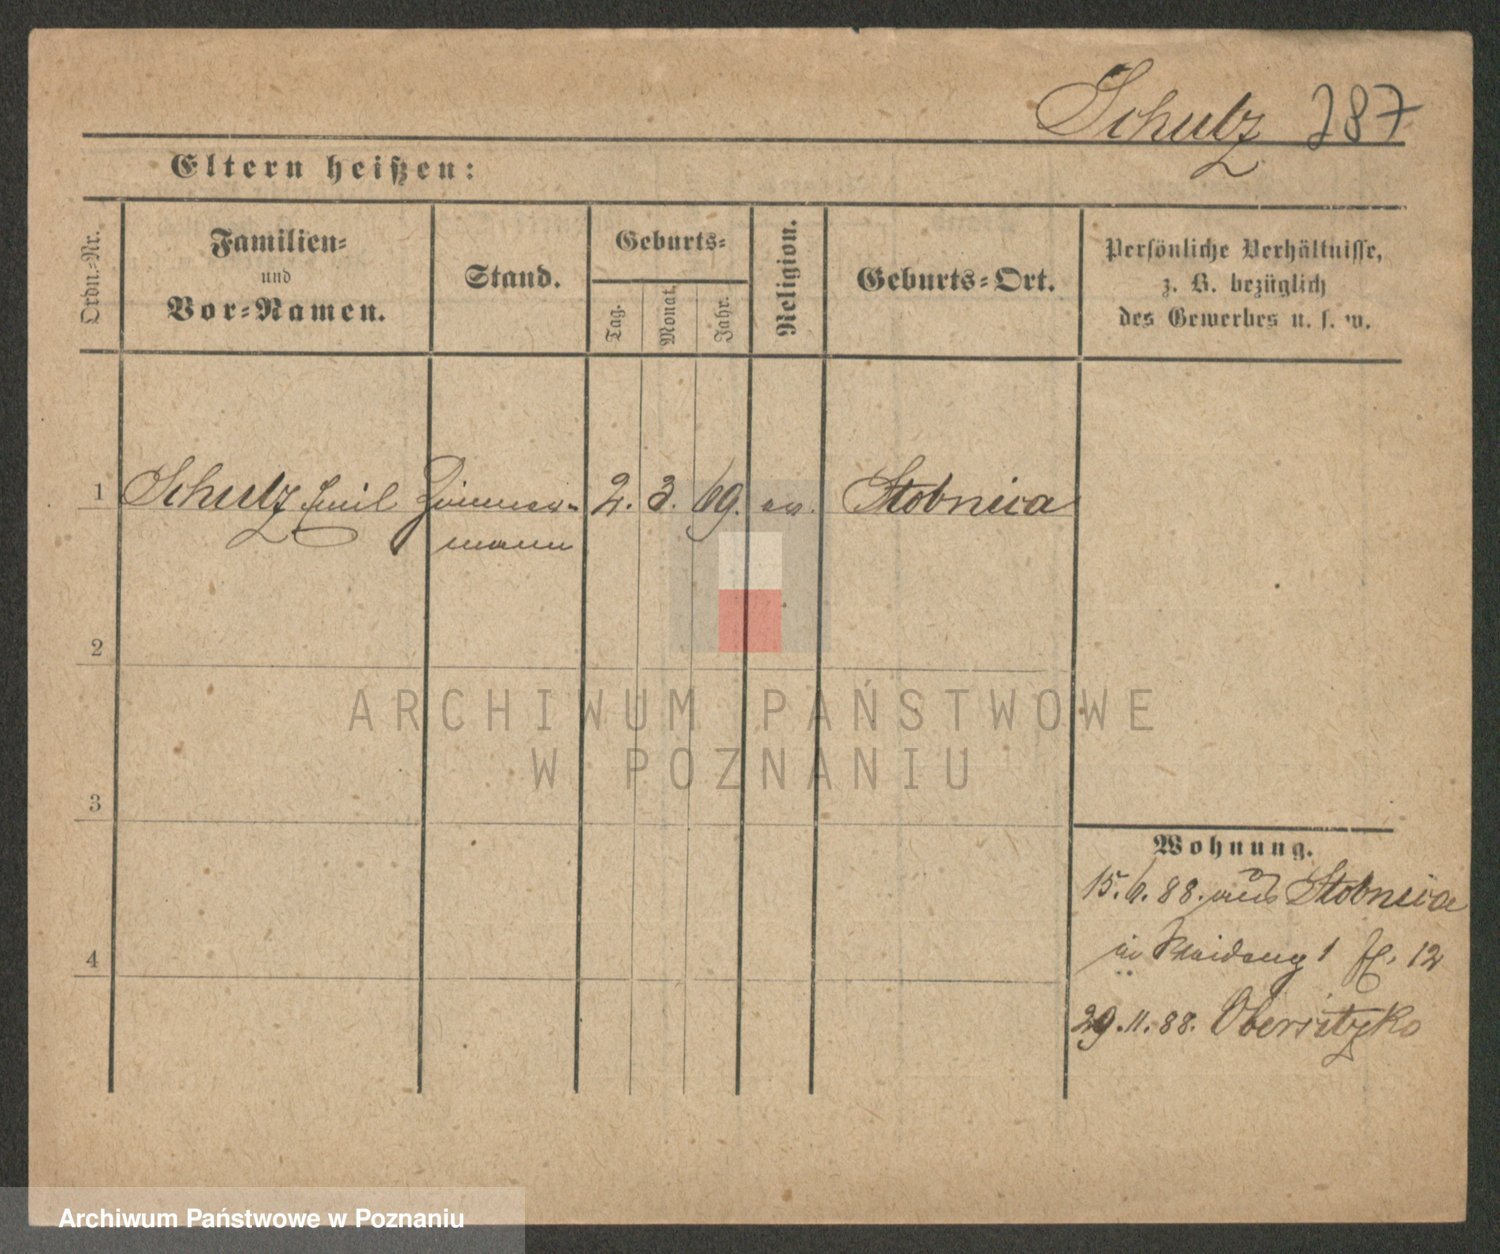 Schulz 787
Eltern heißen:
Ordn.-Nr.
Familien-
und
Vor-Namen.
Stand.
Geburts-
Tag.
Monat.
Jahr.
Religion.
Geburts-Ort.
Persönliche Verhältnisse,
z. B. bezüglich
des Gewerbes u. s. w.
1 Schulz Emil Zimmer- 2. 3. 69. ev. Stobnica
mann
2
3
4
ARCHIWUM PAŃSTWOWE
W POZNANIU
Wohnung.
15. 6. 88. aus Stobnica
in 1 12
29. 11. 88. Obersitzko
Archiwum Państwowe w Poznaniu